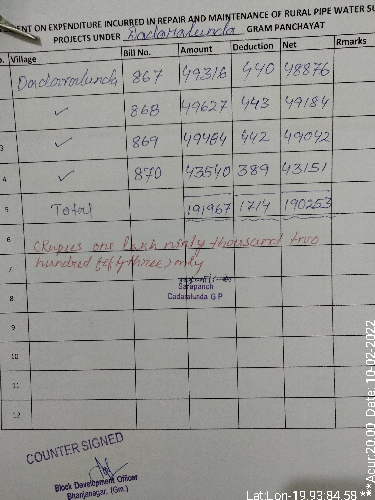 EMENT ON EXPENDITURE INCURRED IN REPAIR AND MAINTENANCE OF RURAL PIPE WATER SU
PROJECTS UNDER Dadaralunda GRAM PANCHAYAT
o. Village Bill No. Amount Deduction Net Rmarks
Dadaralunda 867 49316 440 48876
✓ 868 49627 443 49184
3 ✓ 869 49484 442 49042
4 ✓ 870 43540 389 43151
5 Total 191967 1714 190253
6 (Rupies one lakh ninty thousand two
7 hundred fifty three) only
Sarapanch
8 Dadaralunda G.P
9
10
11
12
COUNTER SIGNED
Block Development Officer
Bhanjanagar, (Gm.)
Lat:Lon-19.93:84.58 ***Acur:20.00 Date: 10-02-2022